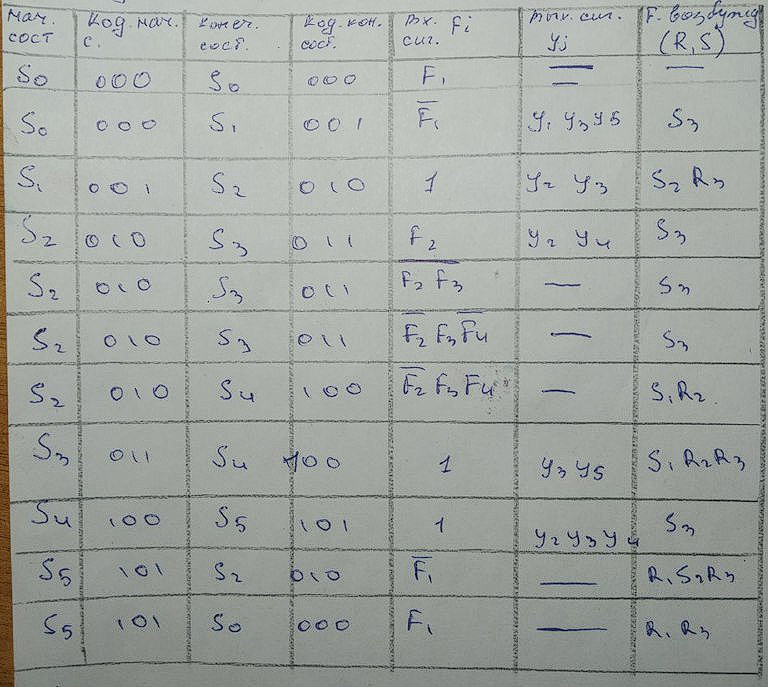 нач. сост | Код нач. с. | конеч. сост. | Код. кон. сост. | вх. сиг. Fi | вых. сиг. yj | F. возбужд (R,S)
S0 | 000 | S0 | 000 | F1 | — | —
S0 | 000 | S1 | 001 | F̅1 | y1 y3 y5 | S3
S1 | 001 | S2 | 010 | 1 | y2 y3 | S2 R3
S2 | 010 | S3 | 011 | F2 | y2 y4 | S3
S2 | 010 | S3 | 011 | F̅2 F̅3 | — | S3
S2 | 010 | S3 | 011 | F̅2 F3 F̅4 | — | S3
S2 | 010 | S4 | 100 | F̅2 F3 F4 | — | S1R2
S3 | 011 | S4 | 100 | 1 | y3 y5 | S1 R2R3
S4 | 100 | S5 | 101 | 1 | y2 y3 y4 | S3
S5 | 101 | S2 | 010 | F̅1 | — | R1S2R3
S5 | 101 | S0 | 000 | F1 | — | R1 R3